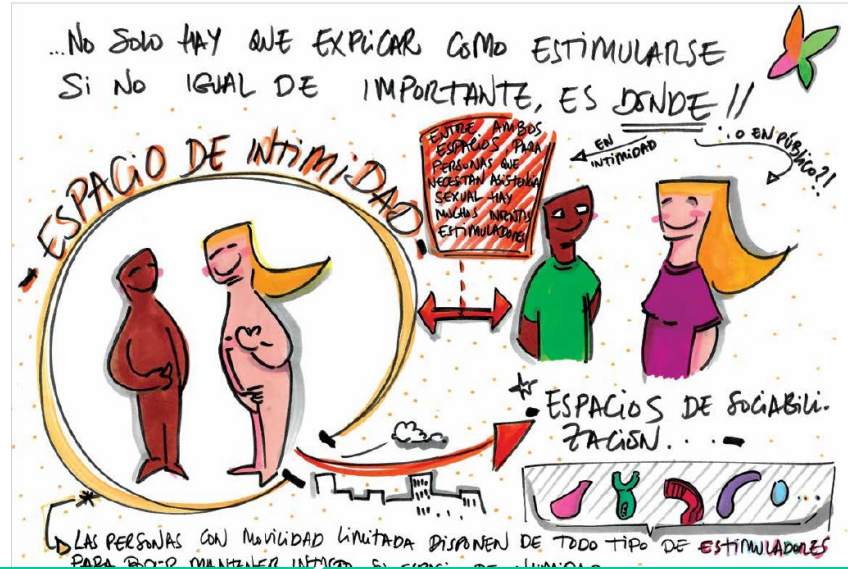 ...NO SOLO HAY QUE EXPLICAR COMO ESTIMULARSE
SI NO IGUAL DE IMPORTANTE, ES DONDE!!
ESPACIO DE INTIMIDAD
ENTRE AMBOS
ESPACIOS, PARA
PERSONAS QUE
NECESITAN ASISTENCIA
SEXUAL HAY
MUCHOS
ESTIMULADORES
EN
INTIMIDAD
...O EN PÚBLICO?!
ESPACIOS DE SOCIABILI-
ZACIÓN...
LAS PERSONAS CON MOVILIDAD LIMITADA DISPONEN DE TODO TIPO DE ESTIMULADORES
PARA MANTENER